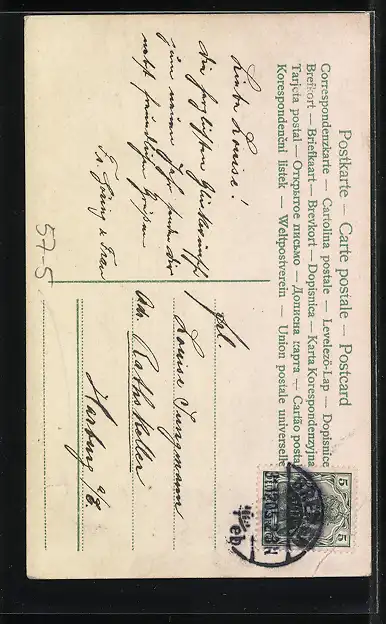 Postkarte — Carte postale — Postcard
Correspondenzkarte — Cartolina postale — Levelező-Lap — Dopisnice
Brefkort — Briefkaart — Brevkort — Dopisnica — Karta Korespondenzyjna
Tarjeta postal — Открытое письмо — Дописна карта — Cartão postal
Korespondenční listek — Weltpostverein — Union postale universelle
Liebe Louise!
Die herzlichsten Glückwünsche
zum neuen Jahr sendet dir
nebst freundlichen Grüßen
Fr. & Frau
57-5
Frl.
Louise Jungmann
Rathskeller
Harburg a/E
5 5
31.12.05